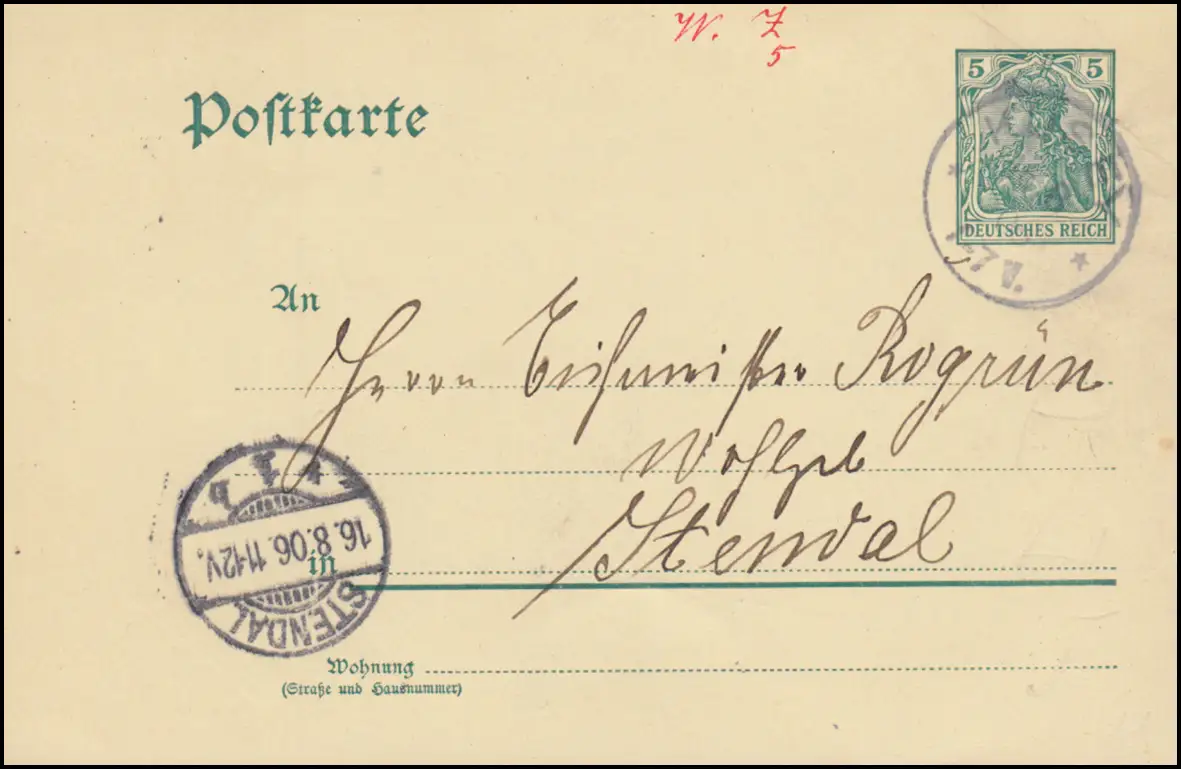 W. Z
5
5 5
Postkarte
DEUTSCHES REICH
-7 V.
An
Herrn Rogrün
Wohlgeb
Stendal
in
16.8.06.11-12V.
STENDAL
Wohnung
(Straße und Hausnummer)